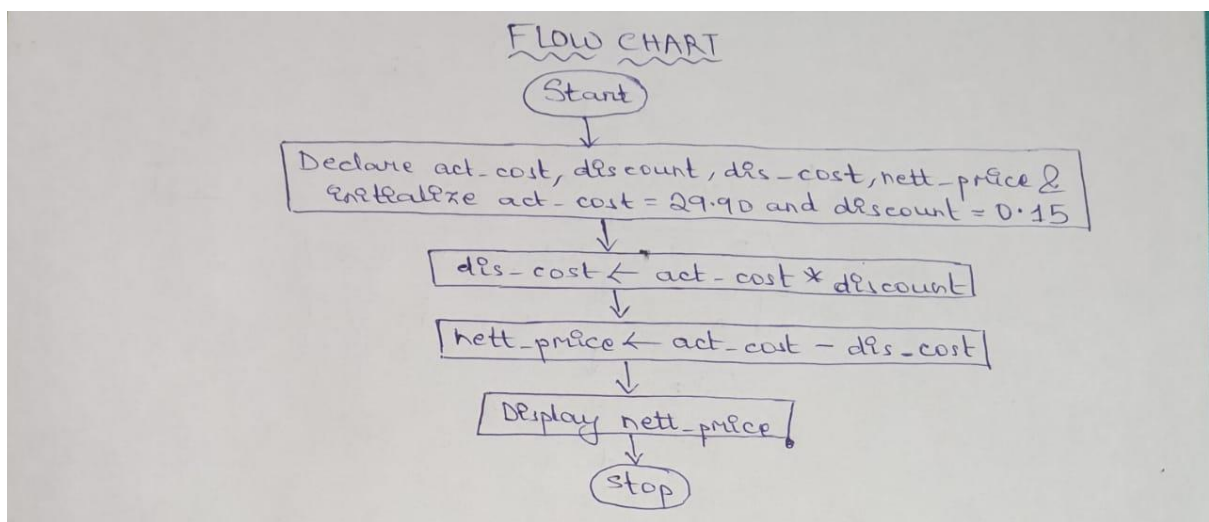 FLOW CHART
Start
Declare act_cost, discount, dis_cost, nett_price &
initialize act_cost = 29.90 and discount = 0.15
dis_cost ← act_cost * discount
nett_price ← act_cost - dis_cost
Display nett_price
stop